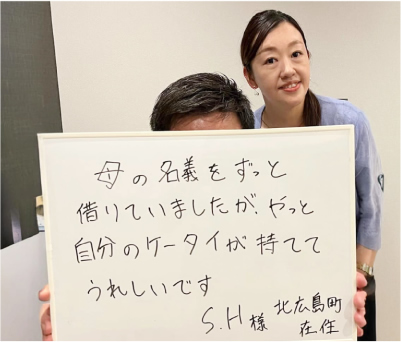 母の名義をずっと
借りていましたが、やっと
自分のケータイが持てて
うれしいです
S.H様 北広島町
在住